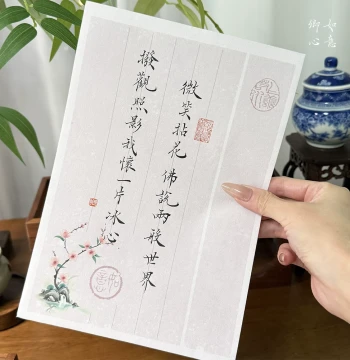 微笑拈花佛說兩般世界
撥觀照影我懷一片冰心
如意
心